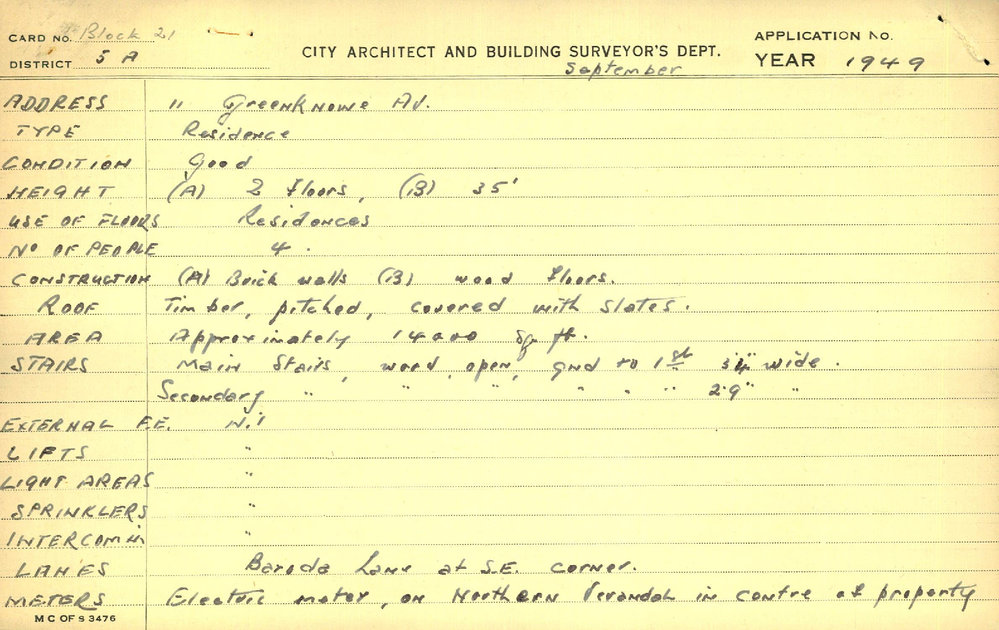 CARD NO. Block 21
APPLICATION NO.
DISTRICT 5 A
CITY ARCHITECT AND BUILDING SURVEYOR'S DEPT.
YEAR 1949
September
ADDRESS 11 Greenknowe Av.
TYPE Residence
CONDITION Good
HEIGHT (A) 2 floors, (B) 35'
USE OF FLOORS Residences
No OF PEOPLE 4.
CONSTRUCTION (A) Brick walls (B) wood floors.
ROOF Timber, pitched, covered with slates.
AREA Approximately 14000 sq ft.
STAIRS Main Stairs, wood, open, gnd to 1st 3'4" wide.
Secondary " " " " " " 2'9" "
EXTERNAL F.E. Nil
LIFTS "
LIGHT AREAS "
SPRINKLERS "
INTERCOM "
LANES Baroda Lane at S.E. corner.
METERS Electric meter, on Northern Verandah in centre of property
M C OF S 3476